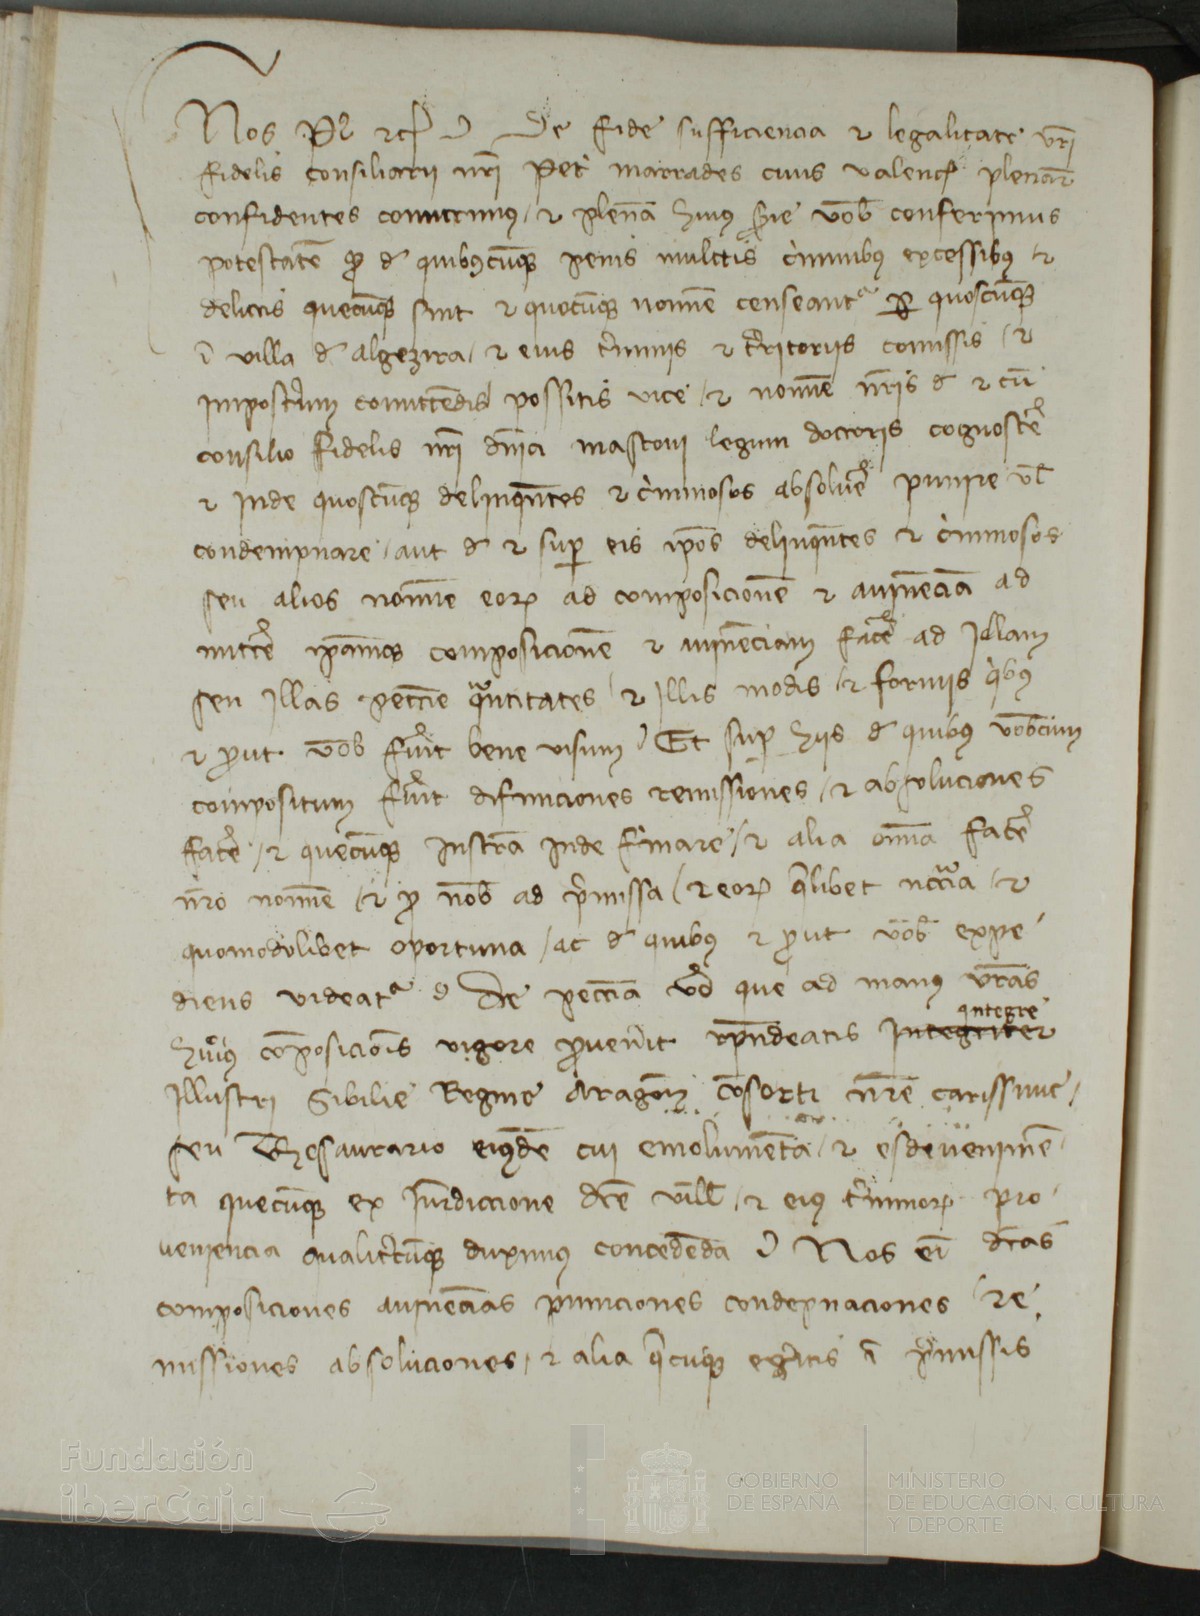 Nos P. etc. De fide sufficiencia et legalitate vri
fidelis consiliarii nri Petri marrades civis valencie plenarie
confidentes comittimus / et plenã huius serie vob conferimus
potestatẽ pro et de quibuscũque penis mulctis criminibus excessibus et
delictis quecũque sint et quocũque nomine censeantur per quoscũque
in villa de algezira / et eius terminis et territoriis comissis / et
imposterum comittendis possitis vice / et nomine nris de et cũ
consilio fidelis nri dnici masconi legum doctoris cognoscere
et inde quoscũque delinquentes et criminosos absolvere punire vel
condempnare / aut de et super eis ipos delinquentes et criminosos
seu alios nomine eorum ad composicionẽ et avinenciã ad
mittere ipamque composicionẽ et avinenciam facere ad illam
seu illas peccunie quantitates / et illis modis / et formis quibus
et prout vob fuerit bene visum Et super hiis de quibus vobcum
compositum fuerit difiniciones remissiones / et absoluciones
facere / et quecũque instra inde firmare / et alia omnia facere
nro nomine / et pro nob ad premissa / et eorum quelibet necessaria / et
quomodolibet oportuna / ac de quibus et prout vob expe
diens videatur De peccunia vero que ad manus vras
huius composicionis vigore provenerit respondeatis integriter
integre
illustri Sibilie Regine Aragonum consorti nre carissime /
seu Thesaurario eiusdem cui emolumenta / et esdevenimen
ta quecũque ex iurdiccione dce ville / et eius terminorum pro
veniencia qualitercũque duximus concedenda Nos eni dcas
composiciones avinencias puniciones condepnaciones / re
missiones absoluciones / et alia quecũque egeritis in premissis
Fundación
iberCaja
GOBIERNO
DE ESPAÑA
MINISTERIO
DE EDUCACIÓN, CULTURA
Y DEPORTE